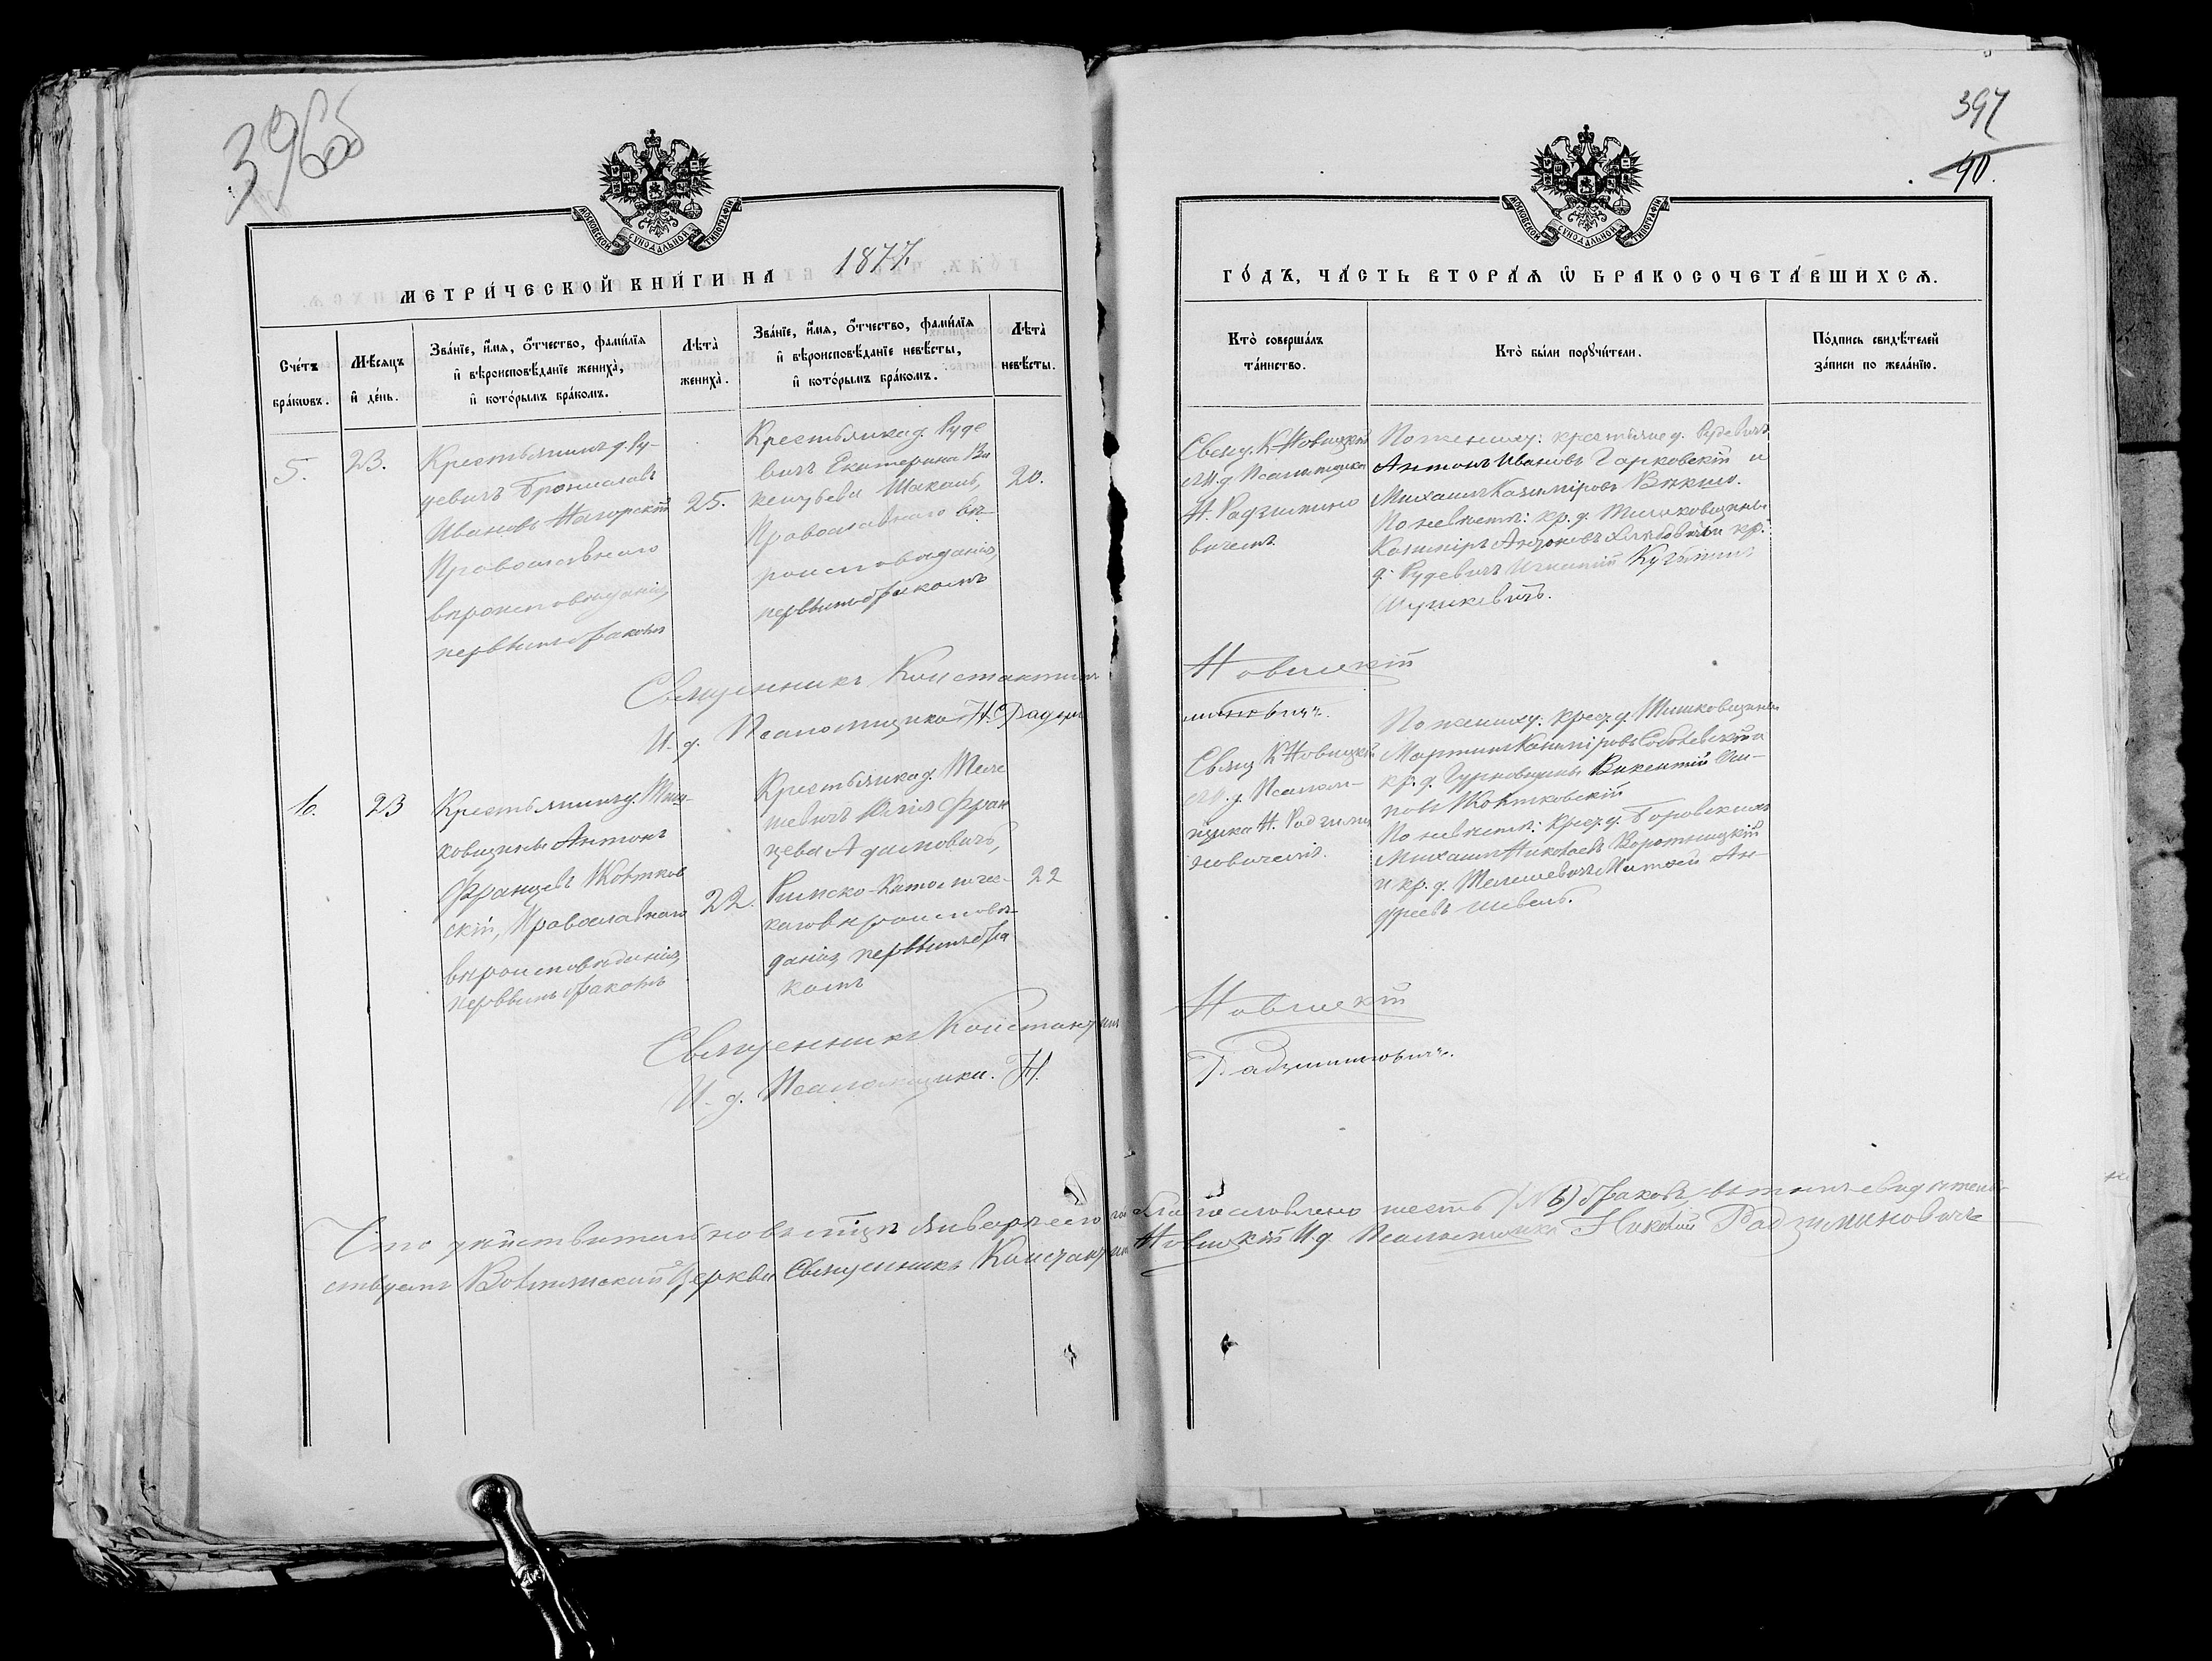 396об
МОСКОВСКОЙ СѴНОДАЛЬНОЙ ТИПОГРАФІИ
МЕТРИ́ЧЕСКОЙ КНИ́ГИ НА 1877.
Сче́тъ бра́кωвъ.
Мѣ́сяцъ и҆ де́нь.
Зва́нїе, и҆́мя, ѻ҆́тчество, фами́лїя
и҆ вѣроисповѣ́данїе жениха̀,
и҆ кото́рымъ бра́комъ.
Лѣта̀
жениха̀.
Зва́нїе, и҆́мя, ѻ҆́тчество, фами́лїя
и҆ вѣроисповѣ́данїе невѣ́сты,
и҆ кото́рымъ бра́комъ.
Лѣта̀
невѣ́сты.
5.
23.
Крестьянинъ д. Ру-
девичъ Брониславъ
Ивановъ Нагорскій
Православнаго
вѣроисповѣданія,
первымъ бракомъ
25.
Крестьянка д. Руде
вичъ Екатерина Ви
кентьева Шакаль,
Православнаго вѣ-
роисповѣданія,
первымъ бракомъ
20.
Священникъ Константинъ
И. д. Псаломщика Н. Радзи
6.
23
Крестьянинъ д. Миш-
ковщины Антонъ
Францевъ Жолтков
скій, Православнаго
вѣроисповѣданія,
первымъ бракомъ
22.
Крестьянка д. Теле
шевичъ Фран
цева Адамовичъ,
Римско-Католичес-
каго вѣроисповѣ-
данія, первымъ бра
комъ
22
Священникъ Константинъ
И. д. Псаломщика. Н.
Что дѣйствительно въ мѣсяцѣ Январѣ сего го
ствуемъ Церкви Священникъ Константинъ
397
40.
МОСКОВСКОЙ СѴНОДАЛЬНОЙ ТИПОГРАФІИ
ГО́ДЪ, ЧА́СТЬ ВТОРА́Я Ѡ҆ БРАКОСОЧЕТА́ВШИХСЯ.
Кто̀ соверша́лъ
та́инство.
Кто̀ бы́ли порꙋчи́тели.
По́дпись свидѣ́телей
за́писи по жела́нїю.
Свящ. К. Новицкій
съ И. д. Псаломщика
Н. Радзимино
вичемъ.
По жениху: крестьяне д. Рудевичъ
Антонъ Ивановъ Гарковскій и
Михаилъ Казиміровъ
По невѣстѣ: кр. д. Мишковщины
Казиміръ Антоновъ и кр.
д. Рудевичъ Игнатій
Шушкевичъ.
Новицкій
миновичъ.
Свящ К. Новицкій
съ И. д. Псалом-
щика Н. Радзими
новичемъ.
По жениху: крест. д. Мишковщины
Мартинъ Казиміровъ Соболевскій и
кр. д. Гурновщины Викентій Оси-
повъ Жолтковскій
По невѣстѣ: крест. д. Боровскихъ
Михаилъ Николаевъ Воротницкій
и кр. д. Телешевичъ Матвѣй Ан-
дреевъ Шевель.
Новицкій
Радзиминовичъ.
благословлено шесть (№ 6) браковъ, въ томъ свидѣтель-
Новицкій И д. Псаломщика Николай Радзиминовичъ